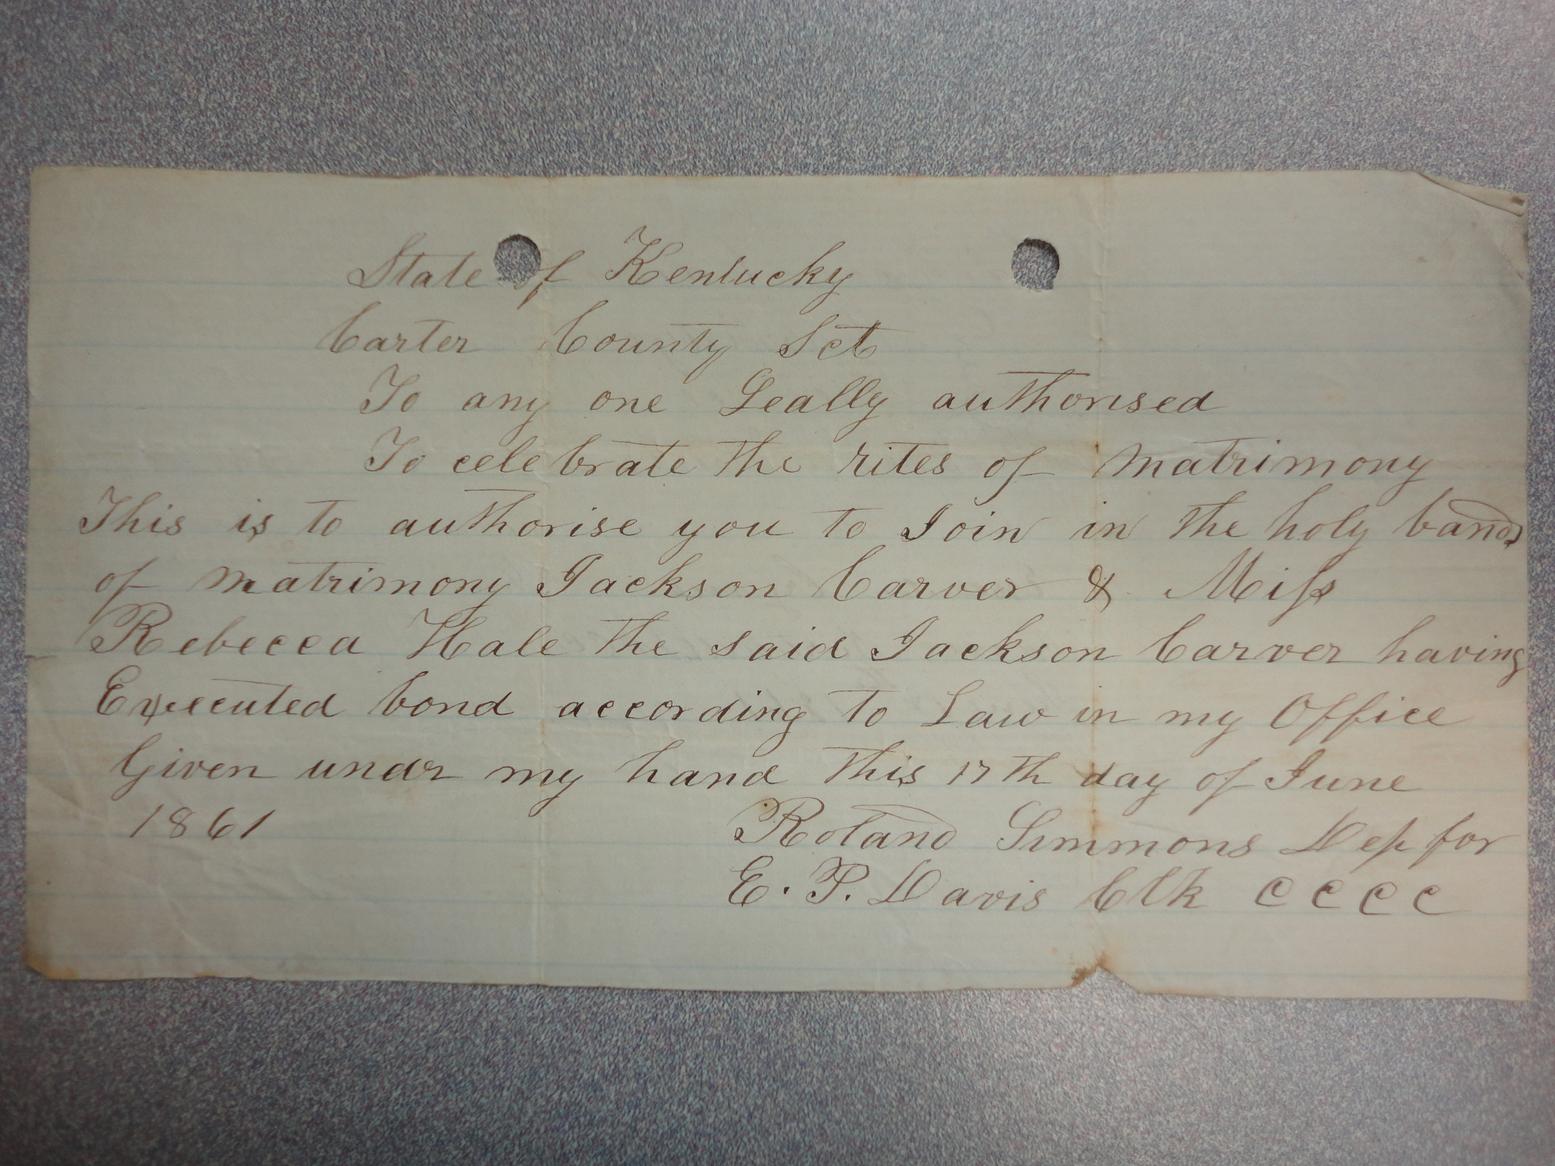 State of Kentucky
Carter County Sct
To any one Leally authorised
To celebrate the rites of matrimony
This is to authorise you to Join in the holy bands
of matrimony Jackson Carver & Miss
Rebecca Hale the said Jackson Carver having
Executed bond according to Law in my Office
Given undr my hand this 17th day of June
1861 Roland Simmons Dep for
E. P. Davis Clk C C C C